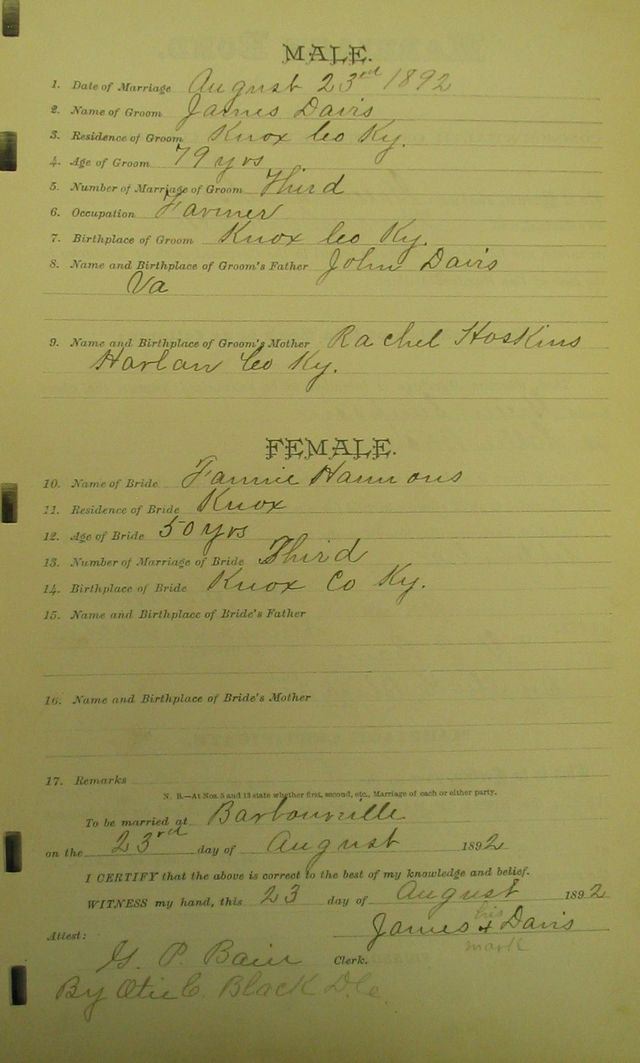 MALE.
1. Date of Marriage August 23rd 1892
2. Name of Groom James Davis
3. Residence of Groom Knox Co Ky.
4. Age of Groom 79 yrs
5. Number of Marriage of Groom Third
6. Occupation Farmer
7. Birthplace of Groom Knox Co Ky.
8. Name and Birthplace of Groom's Father John Davis
Va
9. Name and Birthplace of Groom's Mother Rachel Hoskins
Harlan Co Ky.
FEMALE.
10. Name of Bride Fannie Hammons
11. Residence of Bride Knox
12. Age of Bride 50 yrs
13. Number of Marriage of Bride Third
14. Birthplace of Bride Knox Co Ky.
15. Name and Birthplace of Bride's Father
16. Name and Birthplace of Bride's Mother
17. Remarks
N. B.—At Nos. 5 and 13 state whether first, second, etc., Marriage of each or either party.
To be married at Barbourville
on the 23rd day of August 1892
I CERTIFY that the above is correct to the best of my knowledge and belief.
WITNESS my hand, this 23 day of August 1892
James his x mark Davis
Attest:
G. P. Bain Clerk.
By Otie C. Black D.C.